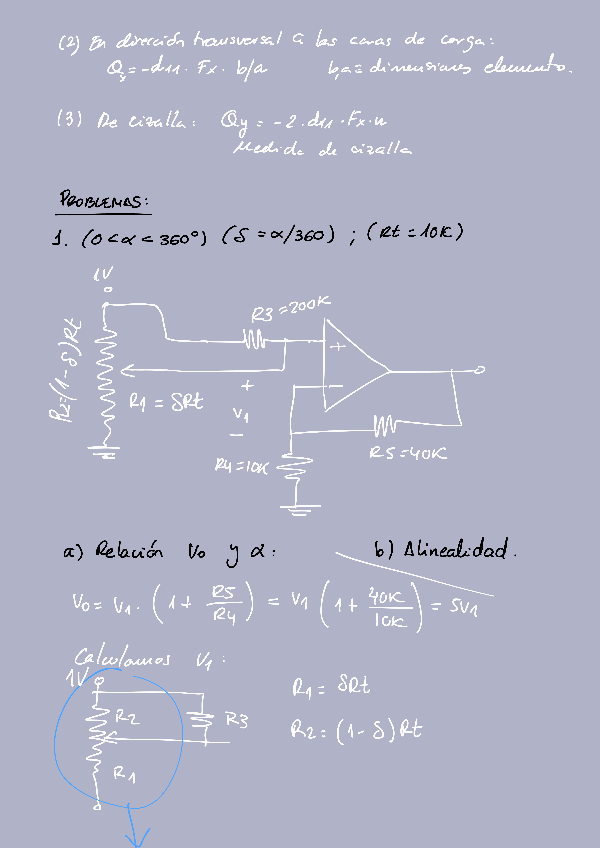 (2) En dirección transversal a las caras de carga:
Qy = -d11 · Fx · b/a     b,a = dimensiones elemento.
(3) De cizalla: Qy = -2·d11·Fx·n
Medida de cizalla
PROBLEMAS:
1. (0<α<360°) (δ = α/360) ; (Rt = 10K)
1V
R3 = 200K
R2=(1-δ)Rt
+
R1 = δRt
+
V1
-
-
R4=10K
R5=40K
a) Relación Vo y α:     b) Alinealidad.
Vo = V1 · (1 + R5/R4) = V1 (1 + 40K/10K) = 5V1
Calculamos V1:
1V
R1 = δRt
R2
R3
R2 = (1-δ)Rt
R1